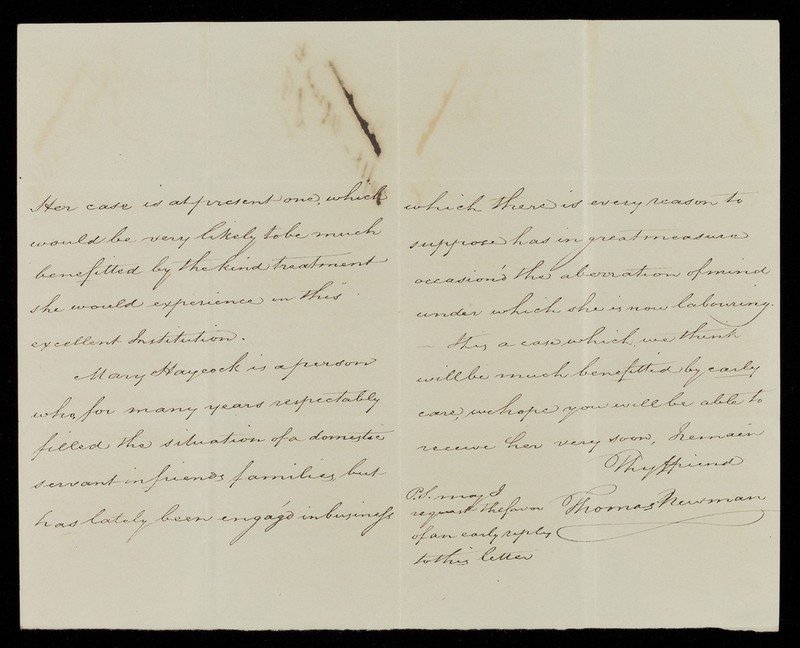 Her case is at present one, which
would be very likely to be much
benefitted by the kind treatment
she would experience in this
excellent Institution.
Mary Haycock is a person
who, for many years respectably
filled the situation of a domestic
servant in friends families, but
has lately been engag'd in business
which there is every reason to
suppose has in great measure
occasion'd the aberration of mind
under which she is now labouring.
— It is a case which we think
will be much benefitted by early
care, we hope you will be able to
receive her very soon, I remain
Thy ffriend
Thomas Newman
P.S. may I
request the favor
of an early reply
to this letter